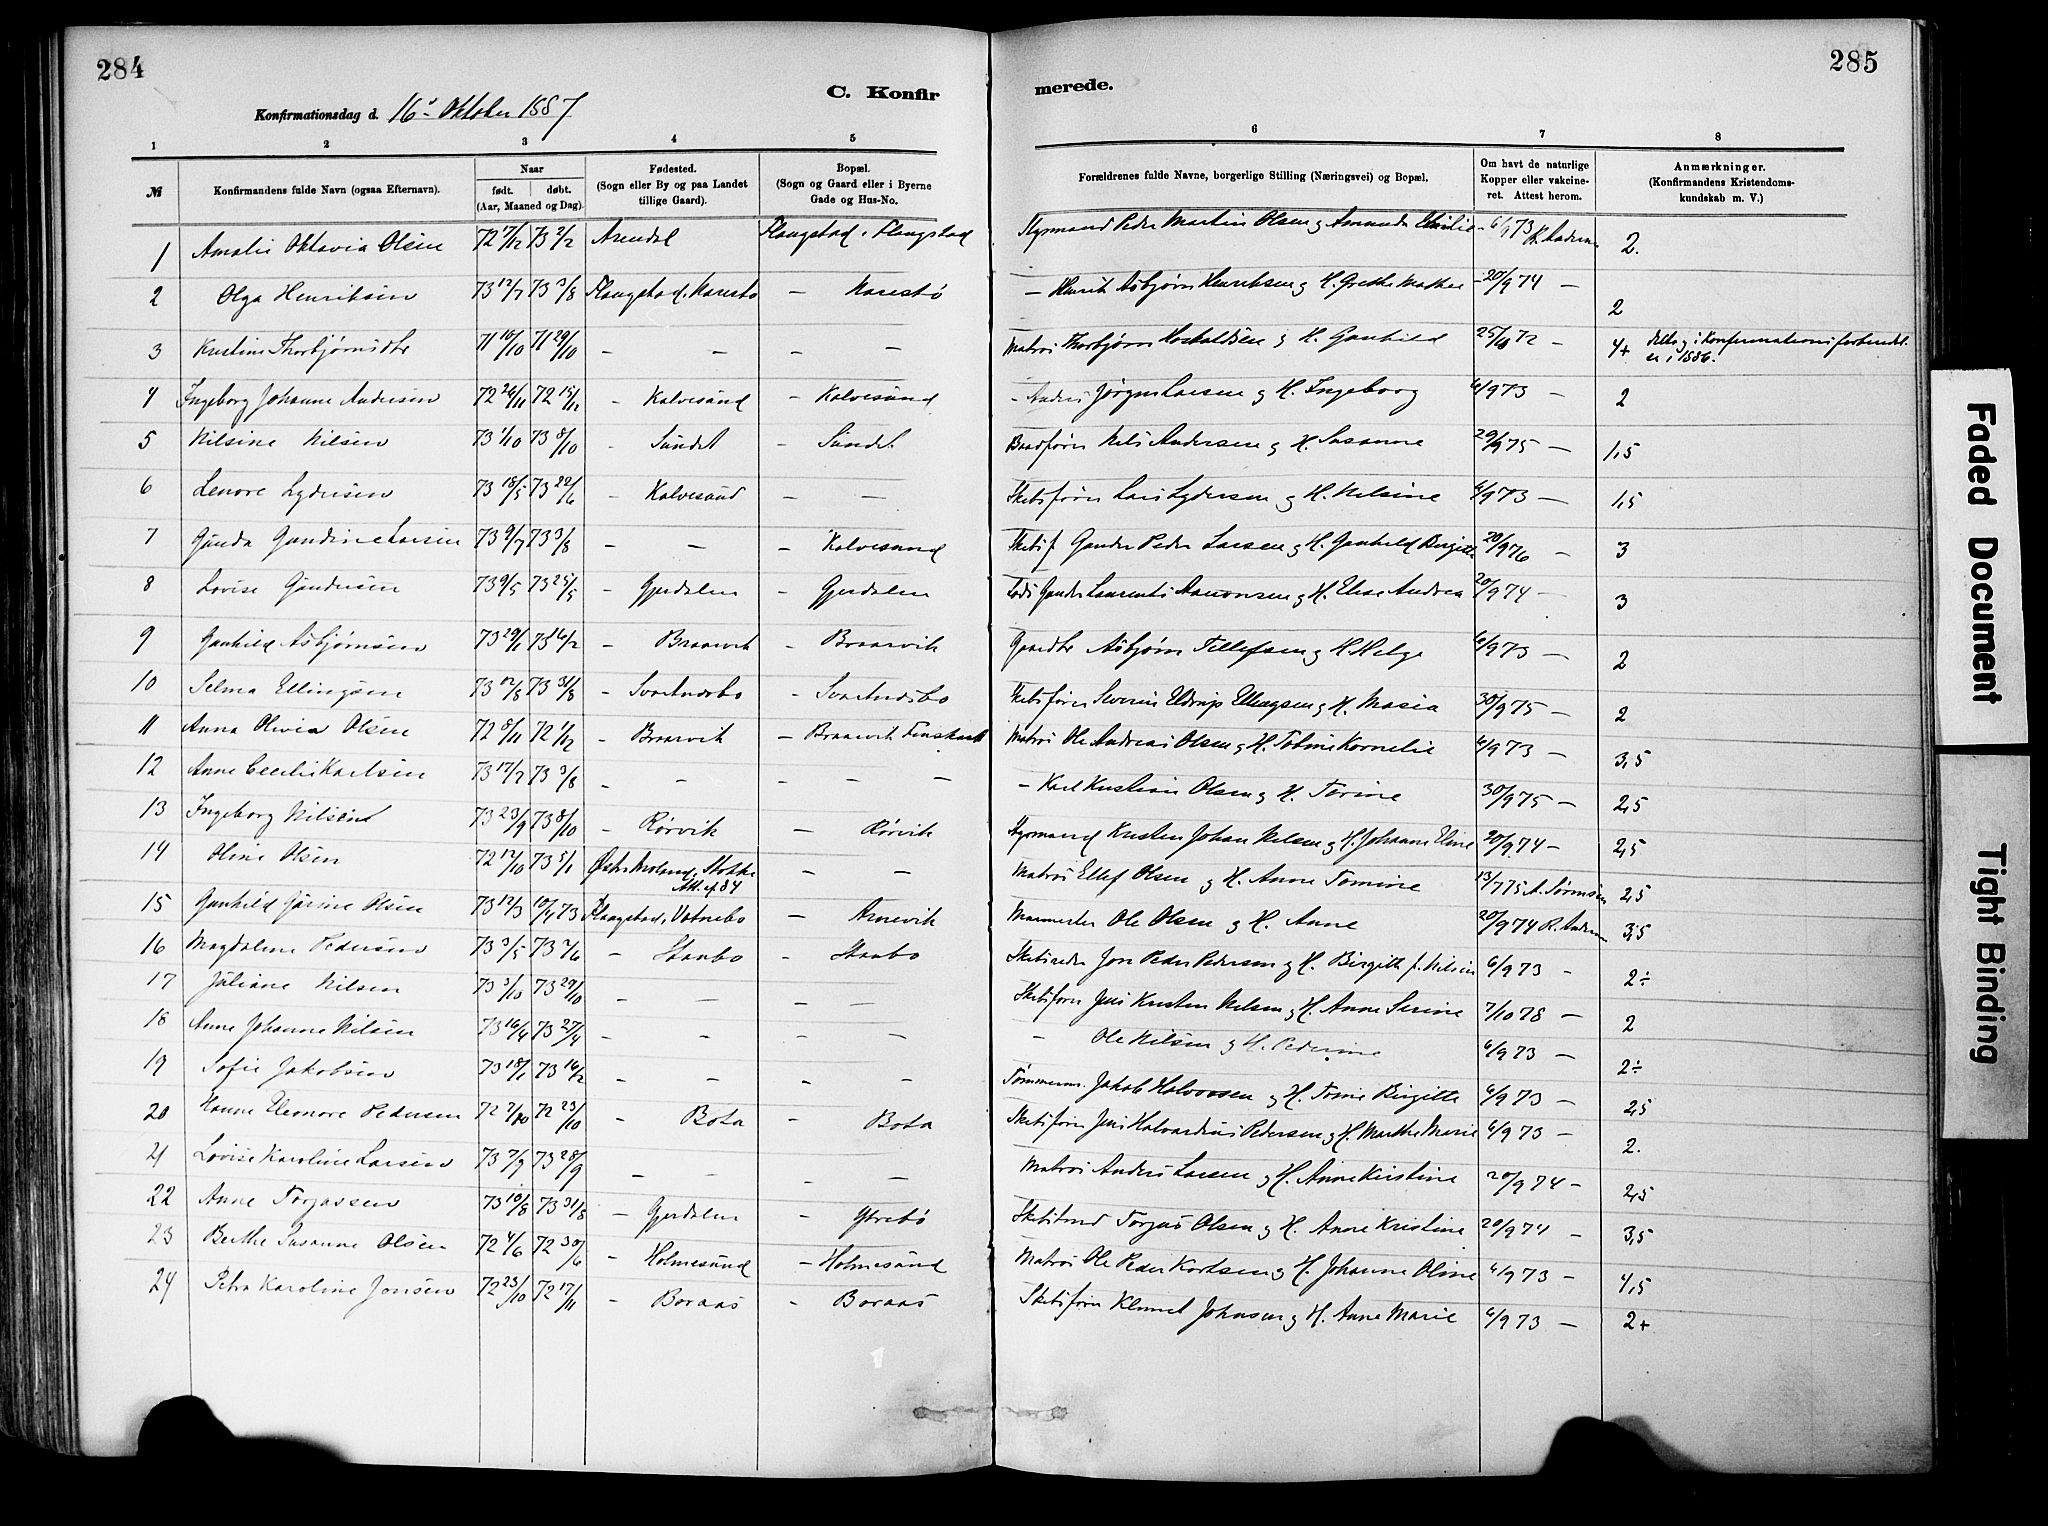 284
285
C. Konfir
merede.
Konfirmationsdag d. 16de Oktober 1887
1 2 3 4 5 6 7 8
№ Konfirmandens fulde Navn (ogsaa Efternavn). Naar født. døbt. (Aar, Maaned og Dag). Fødested. (Sogn eller By og paa Landet tillige Gaard). Bopæl. (Sogn og Gaard eller i Byerne Gade og Hus-No. Forældrenes fulde Navne, borgerlige Stilling (Næringsvei) og Bopæl. Om havt de naturlige Kopper eller vakcineret. Attest herom. Anmærkninger. (Konfirmandens Kristendomskundskab m. V.)
1 Amalie Oktavia Olsen 72 7/12 73 2/2 Arendal Flangstad, Flangstad Styrmand Peder Martin Olsen og Amanda Emilie 6/9 73 2.
2 Olga Henriksen 73 12/7 73 3/8 Flangstad, Narestø — Narestø — Henrik Asbjørn Henriksen og H. Grethe Mathea 20/9 74 — 2
3 Kristine Thorbjørnsdtr 71 10/10 71 29/10 — — — — Matros Thorbjørn og H. Gunhild 25/10 72 — 4+ deltog i Konfirmationsforberedelse i 1886.
4 Ingeborg Johanne Andersen 72 26/11 72 15/12 — Kalvesund — Kalvesund — Anders Jørgen Larsen og H. Ingeborg 6/9 73 — 2
5 Nilsine Nilsen 73 1/10 73 8/10 — Sundet — Sundet Baadfører Nils Andersen og H. Susanne 29/9 75 — 1,5
6 Lenore Lydersen 73 18/5 73 22/6 — Kalvesund — — Skibsfører Lars Lydersen og H. Nilsine 6/9 73 — 1,5
7 Gunda Gundine Larsen 73 9/7 73 3/8 — — — Kalvesund Skibsf Gunder Peder Larsen og H. Gunhild Birgitte 20/9 76 — 3
8 Lovise Gundersen 73 9/5 73 25/5 — Gjerdalen — Gjerdalen Lods Gunder Laurents Aanonsen og H. Elise Andrea 20/9 74 — 3
9 Gunhild Asbjørnsen 73 29/1 73 16/2 — Braarvik — Braarvik Gaardbr Asbjørn Tellefsen og H. Helge 6/9 73 — 2
10 Selma Ellingsen 73 12/8 73 31/8 — Svartnesbo — Svartnesbo Skibsfører Severin Eldrup Ellingsen og H. Maria 30/9 75 — 2
11 Anna Olivia Olsen 72 8/11 72 1/12 — Braarvik — Braarvik Matros Ole Andreas Olsen og H. Tobine Kornelie 6/9 73 — 3,5
12 Anne Cecilie Karlsen 73 17/7 73 3/8 — — — — — Karl Kristian Olsen og H. Torine 30/9 75 — 2,5
13 Ingeborg Nilsen 73 23/9 73 8/10 — Rørvik — Rørvik Styrmand Kristen Johan Nilsen og H. Johanne Eline 20/9 74 — 2,5
14 Oline Olsen 72 12/10 73 5/1 Østre Moland, Stokke Att. af 84 — — Matros Ellef Olsen og H. Anne Tomine 13/7 75 A. Sørensen 2,5
15 Gunhild Jørine Olsen 73 12/3 10/4 73 Flangstad, Votnebo — Arnevik Murmester Ole Olsen og H. Anne 20/9 74 R. Andersen 3,5
16 Magdalene Pedersen 73 3/5 73 2/6 — Staubo — Staubo Skibsreder Jon Peder Pedersen og H. Birgitte f. Nilsen 6/9 73 — 2÷
17 Juliane Nilsen 73 3/10 73 29/10 — — — — Skibsfører Jens Kristen Nilsen og H. Anne Serine 7/10 78 — 2
18 Anne Johanne Nilsen 73 16/4 73 27/4 — — — — — Ole Nilsen og H. Pederine 6/9 73 — 2÷
19 Sofie Jakobsen 73 18/1 73 16/2 — — — — Tømmerm. Jakob Halvorsen og H. Tomine Birgitte 6/9 73 — 2,5
20 Hanne Eleonore Pedersen 72 2/10 72 23/10 — Bota — Bota Skibsfører Jens Halvardius Pedersen og H. Marthe Marie 6/9 73 — 2.
21 Lovise Karoline Larsen 73 7/9 73 28/9 — — — — Matros Anders Larsen og H. Anne Kirstine 20/9 74 — 2,5
22 Anne Torjussen 73 10/8 73 31/8 — Gjerdalen — Ytrebø Skibstmd Torjus Olsen og H. Anne Kristine 20/9 74 — 3,5
23 Berthe Susanne Olsen 72 4/6 72 30/6 — Holmesund — Holmesund Matros Ole Peder Karlsen og H. Johanne Oline 6/9 73 — 4,5
24 Petra Karoline Jonsen 72 23/10 72 17/11 — Boraas — Boraas Skibsfører Klemet Johnsen og H. Anne Marie 6/9 73 — 2+
Faded Document
Tight Binding